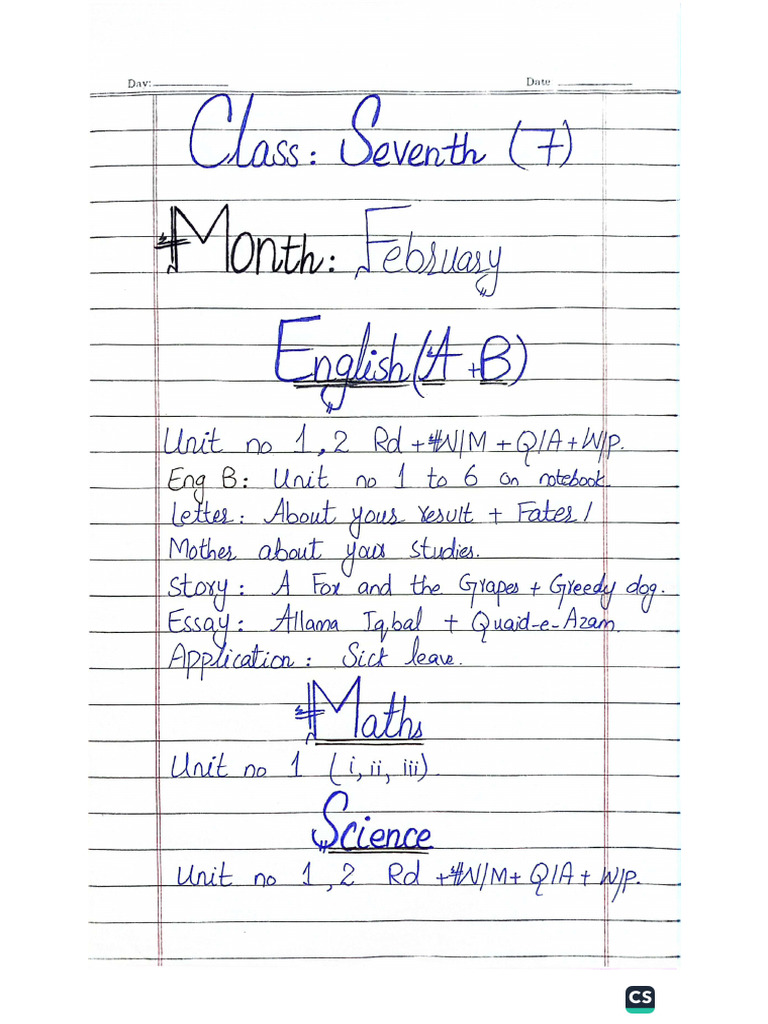 Day: Date
Class: Seventh (7)
Month: February
English (A + B)
Unit no 1, 2 Rd + W/M + Q/A + W/P.
Eng B: Unit no 1 to 6 on notebook.
Letter: About your result + Fater/
Mother about your studies.
Story: A Fox and the Grapes + Greedy dog.
Essay: Allama Iqbal + Quaid-e-Azam.
Application: Sick leave.
Maths
Unit no 1 (i, ii, iii).
Science
Unit no 1, 2 Rd + W/M + Q/A + W/P.
CS